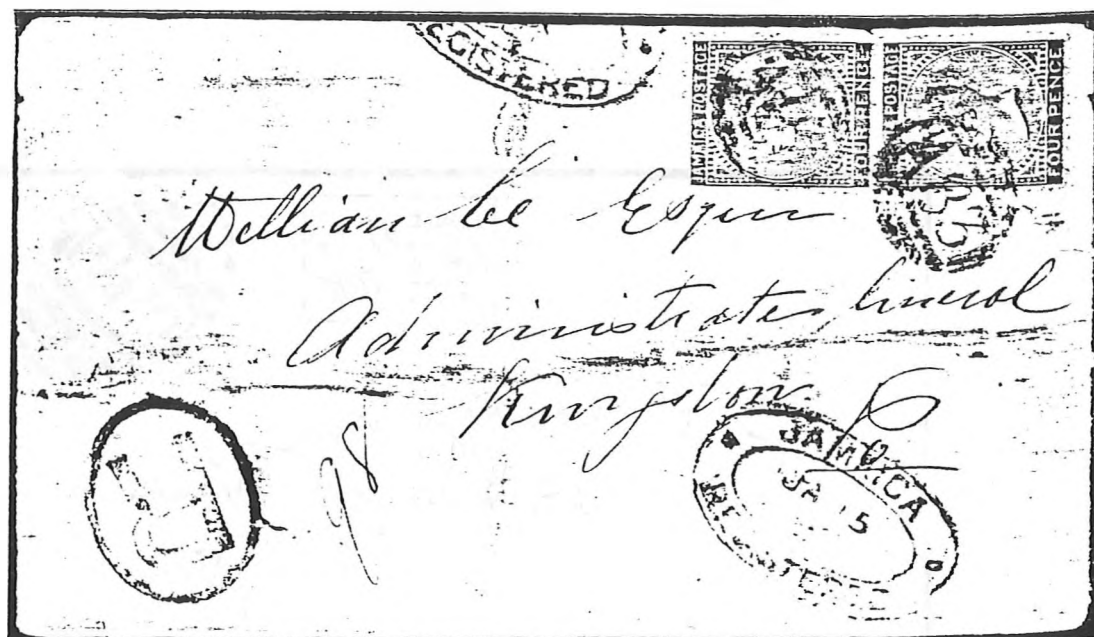 REGISTERED
POSTAGE
FOUR PENCE
POSTAGE
FOUR PENCE
William Lee Esqur
Administrator General
Kingston
98
JAMAICA
JA 15
REGISTERED
R